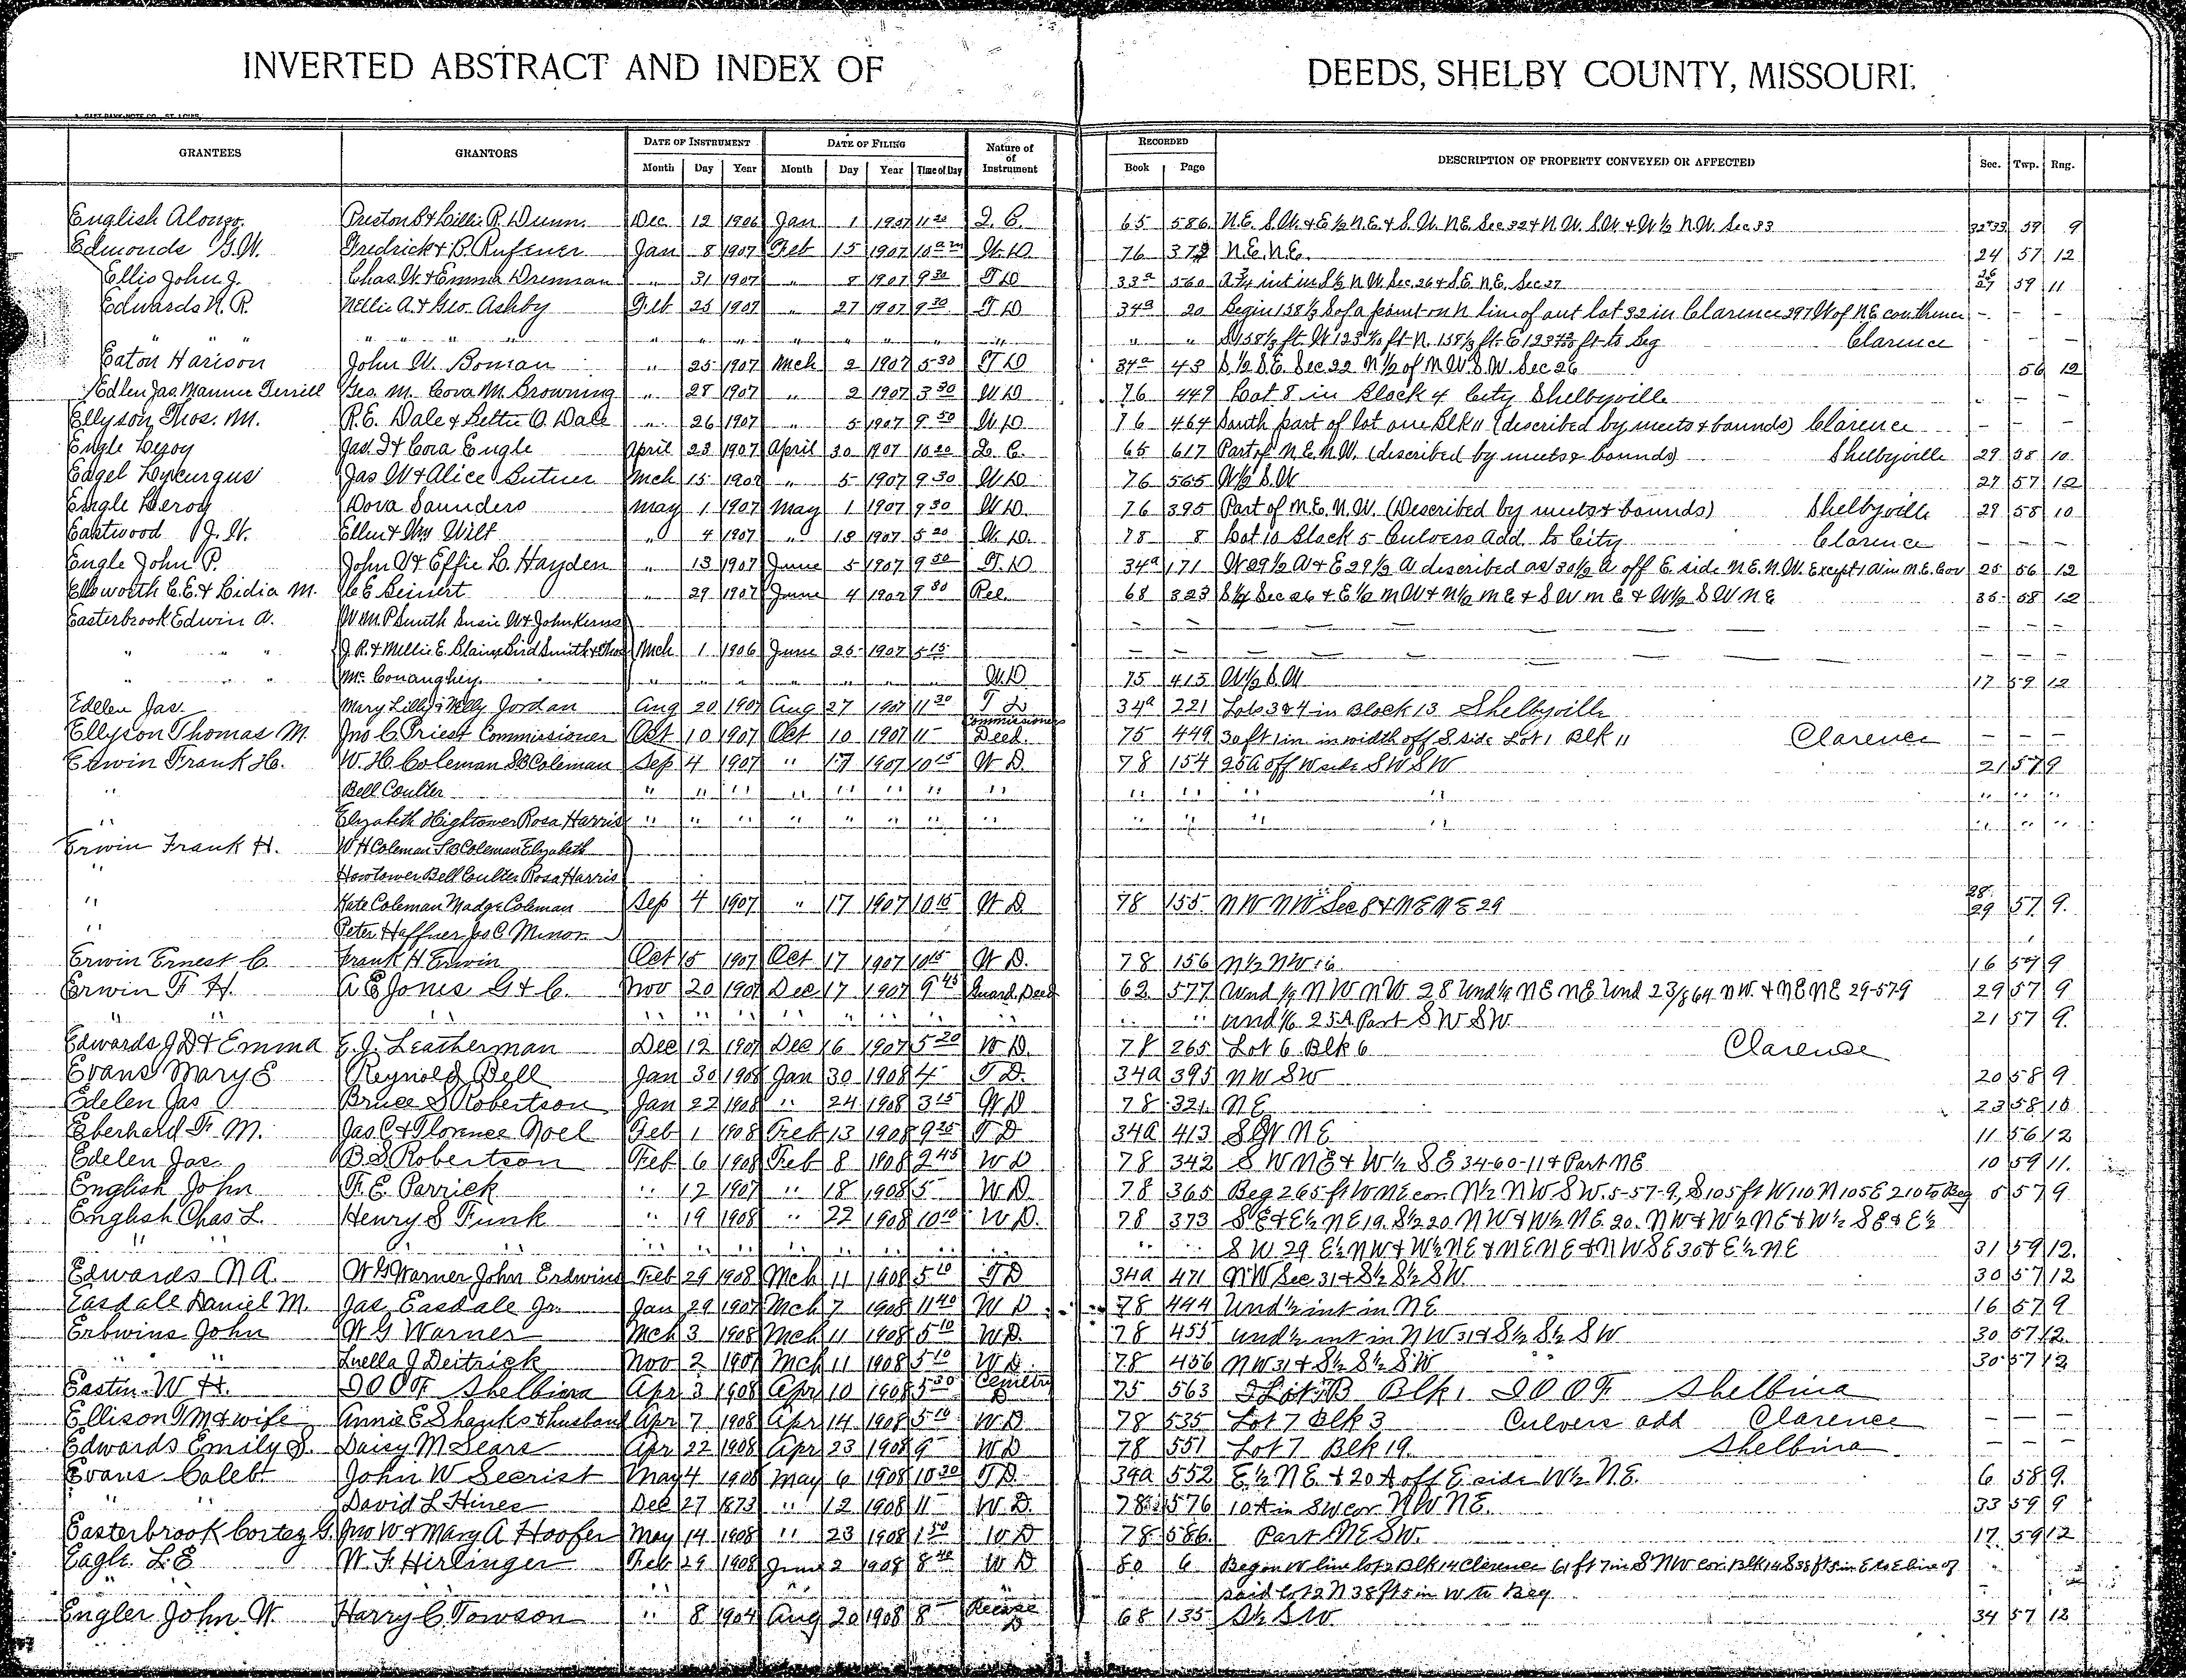 INVERTED ABSTRACT AND INDEX OF DEEDS, SHELBY COUNTY, MISSOURI.
GRANTEES GRANTORS DATE OF INSTRUMENT DATE OF FILING Nature of Instrument RECORDED DESCRIPTION OF PROPERTY CONVEYED OR AFFECTED Sec. Twp. Rng.
Month Day Year Month Day Year Time of Day Book Page
English Alonzo. Preston B & Lillie R. Dunn. Dec 12 1906 Jan 1 1907 11 20 Q. C. 65 586 N.E. S.W. & E ½ N.E. & S.W. N.E. Sec 32 & N.W. S.W. & W ½ N.W. Sec 33 32&33 59 9
Edmonds G.W. Fredrick & B. Ruffner Jan 8 1907 Feb 15 1907 10 am W.D. 76 372 N.E. N.E. 24 57 12
Ellis John J. Chas. W. & Emma Drennan " 31 1907 " 8 1907 9 30 T D 33a 560 A ¾ int in S½ N.W. Sec. 26 & S.E. N.E. Sec 27 26 27 59 11
Edwards N. R. Nellie A. & Geo. Ashby Feb 25 1907 " 27 1907 9 30 T D 34a 20 Begin 158 ⅓ S of a point on N line of out lot 32 in Clarence 297 W of N.E. cor thence - - -
" " " " " " " " " " " " " " " S 158 ⅓ ft. W 123 ft - N. 158 ⅓ ft. E 123 ft to beg Clarence
Eaton Harison John W. Boman " 25 1907 Mch 2 1907 5 30 T D 34a 43 S. ½ S.E. Sec 22 N ½ of N.W. S.W. Sec 26 56 12
Edlen Jas. Maurice Terrill Geo. M. Cova M. Browning " 28 1907 " 2 1907 3 30 W D 76 449 Lot 8 in Block 4 City Shelbyville - - -
Ellyson Thos. M. R.E. Dale & Lettie O. Dale " 26 1907 " 5 1907 9 50 W D 76 464 South part of lot one Blk 11 (described by meets & bounds) Clarence - - -
Engle Leroy Jas. I & Cora Engle April 23 1907 April 30 1907 10 20 Q. C. 65 617 Part of N.E. N.W. (described by meets & bounds) Shelbyville 29 58 10
Eagel Lykurgus Jas W & Alice Butner Mch 15 1907 " 5 1907 9 30 W D 76 565 W ½ S.W 27 57 12
Engle Leroy Dova Saunders May 1 1907 May 1 1907 9 30 W D. 76 395 Part of N.E. N.W. (Described by meets & bounds) Shelbyville 29 58 10
Eastwood J. W. Ellen & Wm Wilt " 4 1907 " 18 1907 5 20 W. D. 78 8 Lot 10 Block 5 Culvers Add. to City Clarence - - -
Engle John P. John A & Effie L. Hayden " 13 1907 June 5 1907 9 50 T. D 34a 171 W 29 ½ A & E 29 ½ A described as 30½ a off E. side N.E. N.W. Except 1 A in N.E. Cor 25 56 12
Ellsworth C.E. & Lidia M. C E Beinert " 29 1907 June 4 1907 9 30 Rel. 68 323 S ¼ Sec 26 & E ½ N W & N ½ N E & S W N E & W ½ S W N E 35 58 12
Easterbrook Edwin A. Wm. P Smith Susie W & John Kerns - - - - -
" " " J.R. & Millie E. Blain Bird Smith & Thos Mch 1 1906 June 25 1907 5 15 - - - - -
" " " Mc Conaughey. " " " " " " " W.D 75 413 W ½ S.W 17 59 12
Edelen Jas. Mary Lilly & Nelly Jordan Aug 20 1907 Aug 27 1907 11 30 T D 34a 221 Lots 3 & 4 in Block 13 Shelbyville
Ellyson Thomas M. Jno C. Priest Commissioner Oct 10 1907 Oct 10 1907 11 Commissioners Deed. 75 449 30 ft 1 in in width off S. side Lot 1 Blk 11 Clarence - - -
Erwin Frank H. W. H. Coleman SB Coleman Sep 4 1907 " 17 1907 10 15 W D. 78 154 25 A off W side S W S W 21 57 9
" Bell Coulter " " " " " " " " " " " " " " "
" Elizabeth Hightower Rosa Harris " " " " " " " " " " " " " " "
Erwin Frank H. W H Coleman S B Coleman Elizabeth
" Howtower Bell Coulter Rosa Harris
" Kate Coleman Madge Coleman Sep 4 1907 " 17 1907 10 15 W D 78 155 N W N W Sec 8 & N E N E 29 28 29 57 9.
" Peter Haffner Jas C. Minor
Erwin Ernest C. Frank H Erwin Oct 15 1907 Oct 17 1907 10 15 W D. 78 156 N ½ N W 16 16 57 9
Erwin F H. A E Jones G & C. Nov 20 1907 Dec 17 1907 9 45 Guard. Deed 62 577 Und 1/9 N W N W 28 Und 1/9 N E N E Und 23/864 N W. & N E N E 29-57-9 29 57 9
" " " " " " " " " " " " " und 1/6 25 A. Part S W S W 21 57 9.
Edwards J D & Emma E. J. Leatherman Dec 12 1907 Dec 16 1907 5 20 W D. 78 265 Lot 6 Blk 6 Clarence
Evans Mary E Reynold Bell Jan 30 1908 Jan 30 1908 4 T D. 34a 395 N W S W 20 58 9
Edelen Jas Bruce S Robertson Jan 22 1908 " 24 1908 3 15 W D 78 321 N E 23 58 10
Eberhard F. M. Jas C & Florence Noel Feb 1 1908 Feb 13 1908 9 25 T D 34a 413 S W N E 11 56 12
Edelen Jas. B.S. Robertson Feb 6 1908 Feb 8 1908 2 45 W D 78 342 S W N E & W ½ S E 34-60-11 & Part N E 10 59 11.
English John F. E. Parrick " 12 1907 " 18 1908 5 W D. 78 365 Beg 265 ft W N E cor. N ½ N W S W. 5-57-9, S 105 ft W 110 N 105 E 210 to Beg 5 57 9
English Chas L. Henry S Funk " 19 1908 " 22 1908 10 10 W D. 78 373 S E & E ½ N E 19. S ½ 20. N W & W ½ N E. 20. N W & W ½ N E & W ½ S E & E ½
" " " " " " " " " " " " " S W 29 E ½ N W & W ½ N E & N E N E & N W S E 30 & E ½ N E 31 59 12.
Edwards N A. W G Warner John Erdwins Feb 29 1908 Mch 11 1908 5 10 T D 34a 471 N W Sec 31 & S ½ S ½ S W 30 57 12
Easdale Daniel M. Jas. Easdale Jr. Jan 29 1907 Mch 7 1908 11 40 W D 78 444 Und ½ int in N E 16 57 9
Erbwins John W G Warner Mch 3 1908 Mch 11 1908 5 10 W D. 78 455 und ½ int in N W 31 & S ½ S ½ S W 30 57 12.
" " Luella J Deitrick Nov 2 1907 Mch 11 1908 5 10 W D. 78 456 N W 31 & S ½ S ½ S W 30 57 12
Eastin W H. I O O F Shelbina Apr 3 1908 Apr 10 1908 5 30 Cemetry D 75 563 Blk 1 I O O F Shelbina
Ellison T M & wife Annie E Shanks & husband Apr 7 1908 Apr 14 1908 5 10 W D 78 535 Lot 7 Blk 3 Culvers add Clarence - - -
Edwards Emily S. Daisy M Sears Apr 22 1908 Apr 23 1908 9 W D 78 551 Lot 7 Blk 19. Shelbina - -
Evans Caleb John W Secrist May 4 1908 May 6 1908 10 30 T D. 34a 552 E. ½ N E. & 20 A off E side W ½ N E. 6 58 9.
" " David L Hines Dec 27 1873 " 12 1908 11 W D. 78 576 10 A in S W cor N W N E. 33 59 9
Easterbrook Cortez G. Jno W & Mary A Hoofer May 14 1908 " 23 1908 1 50 W D 78 586. Part N E S W. 17 59 12
Eagle L E W. F. Hirlinger Feb 29 1908 June 2 1908 8 40 W D 80 6 Beg on W line lot 2 Blk 14 Clarence 61 ft 7 in S N W cor. Blk 14 S 38 ft 5 in E to E line of
said lot 2 N 38 ft 5 in W to Beg
Engler John W. Harry C. Towson " 8 1904 Aug 20 1908 8 Release D 68 135 S ½ S W. 34 57 12